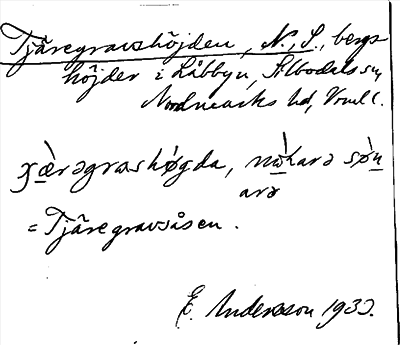 Tjäregravshöjden, N., S., bergs
höjder i Låbbyn, Silbodals sn,
Nordmarks hd, Vrml l.
ɟæ̀rəgrashø̀gda, nòɫarə sø̀n
arə
= Tjäregravsåsen.
E. Andersson 1933.